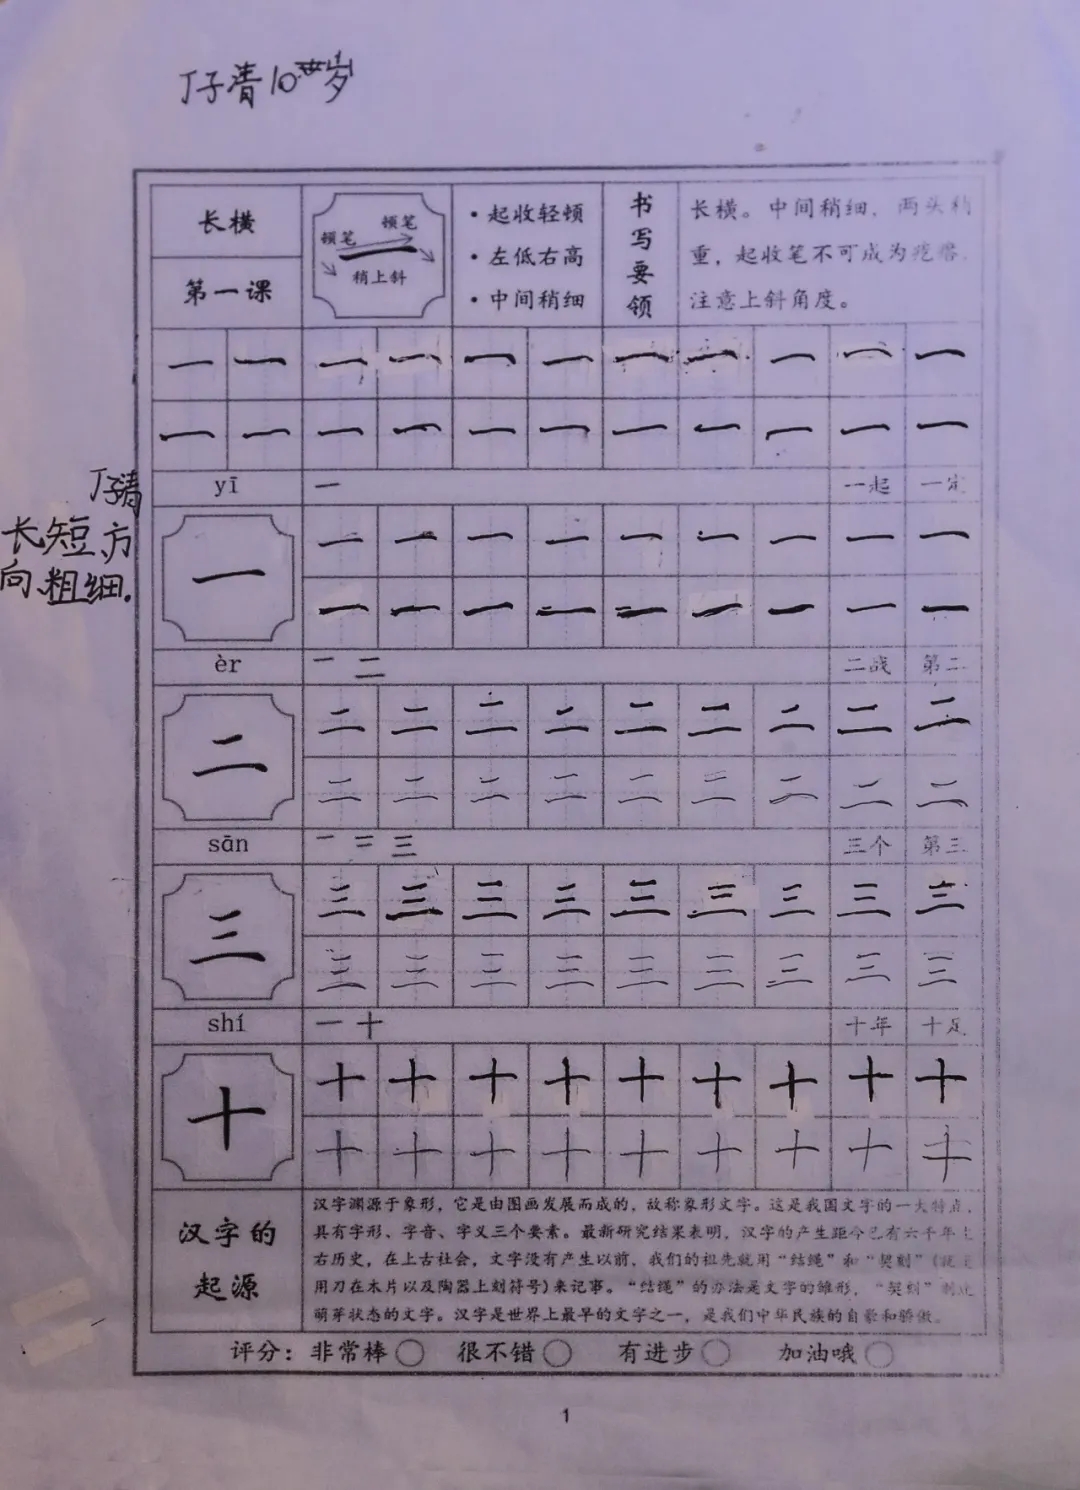 丁子清10岁
长横
第一课
顿笔
顿笔
稍上斜
·起收轻顿
·左低右高
·中间稍细
书写要领
长横。中间稍细，两头稍
重，起收笔不可成为疙瘩，
注意上斜角度。
一 一 一 一 一 一 一 一 一 一 一
一 一 一 一 一 一 一 一 一 一 一
丁子清
长短、方
向、粗细.
yī 一 一起 一定
一
一 一 一 一 一 一 一 一 一
一 一 一 一 一 一 一 一 一
èr 一 二 二战 第二
二
二 二 二 二 二 二 二 二 二
二 二 二 二 二 二 二 二 二
sān 一 二 三 三个 第三
三
三 三 三 三 三 三 三 三 三
三 三 三 三 三 三 三 三 三
shí 一 十 十年 十足
十
十 十 十 十 十 十 十 十 十
十 十 十 十 十 十 十 十
汉字的
起源
汉字渊源于象形，它是由图画发展而成的，故称象形文字。这是我国文字的一大特点，
具有字形、字音、字义三个要素。最新研究结果表明，汉字的产生距今已有六千年上
右历史，在上古社会，文字没有产生以前，我们的祖先就用“结绳”和“契刻”(就是
用刀在木片以及陶器上刻符号)来记事。“结绳”的办法是文字的雏形，“契刻”则
萌芽状态的文字。汉字是世界上最早的文字之一，是我们中华民族的自豪和骄傲。
评分：非常棒 很不错 有进步 加油哦
1